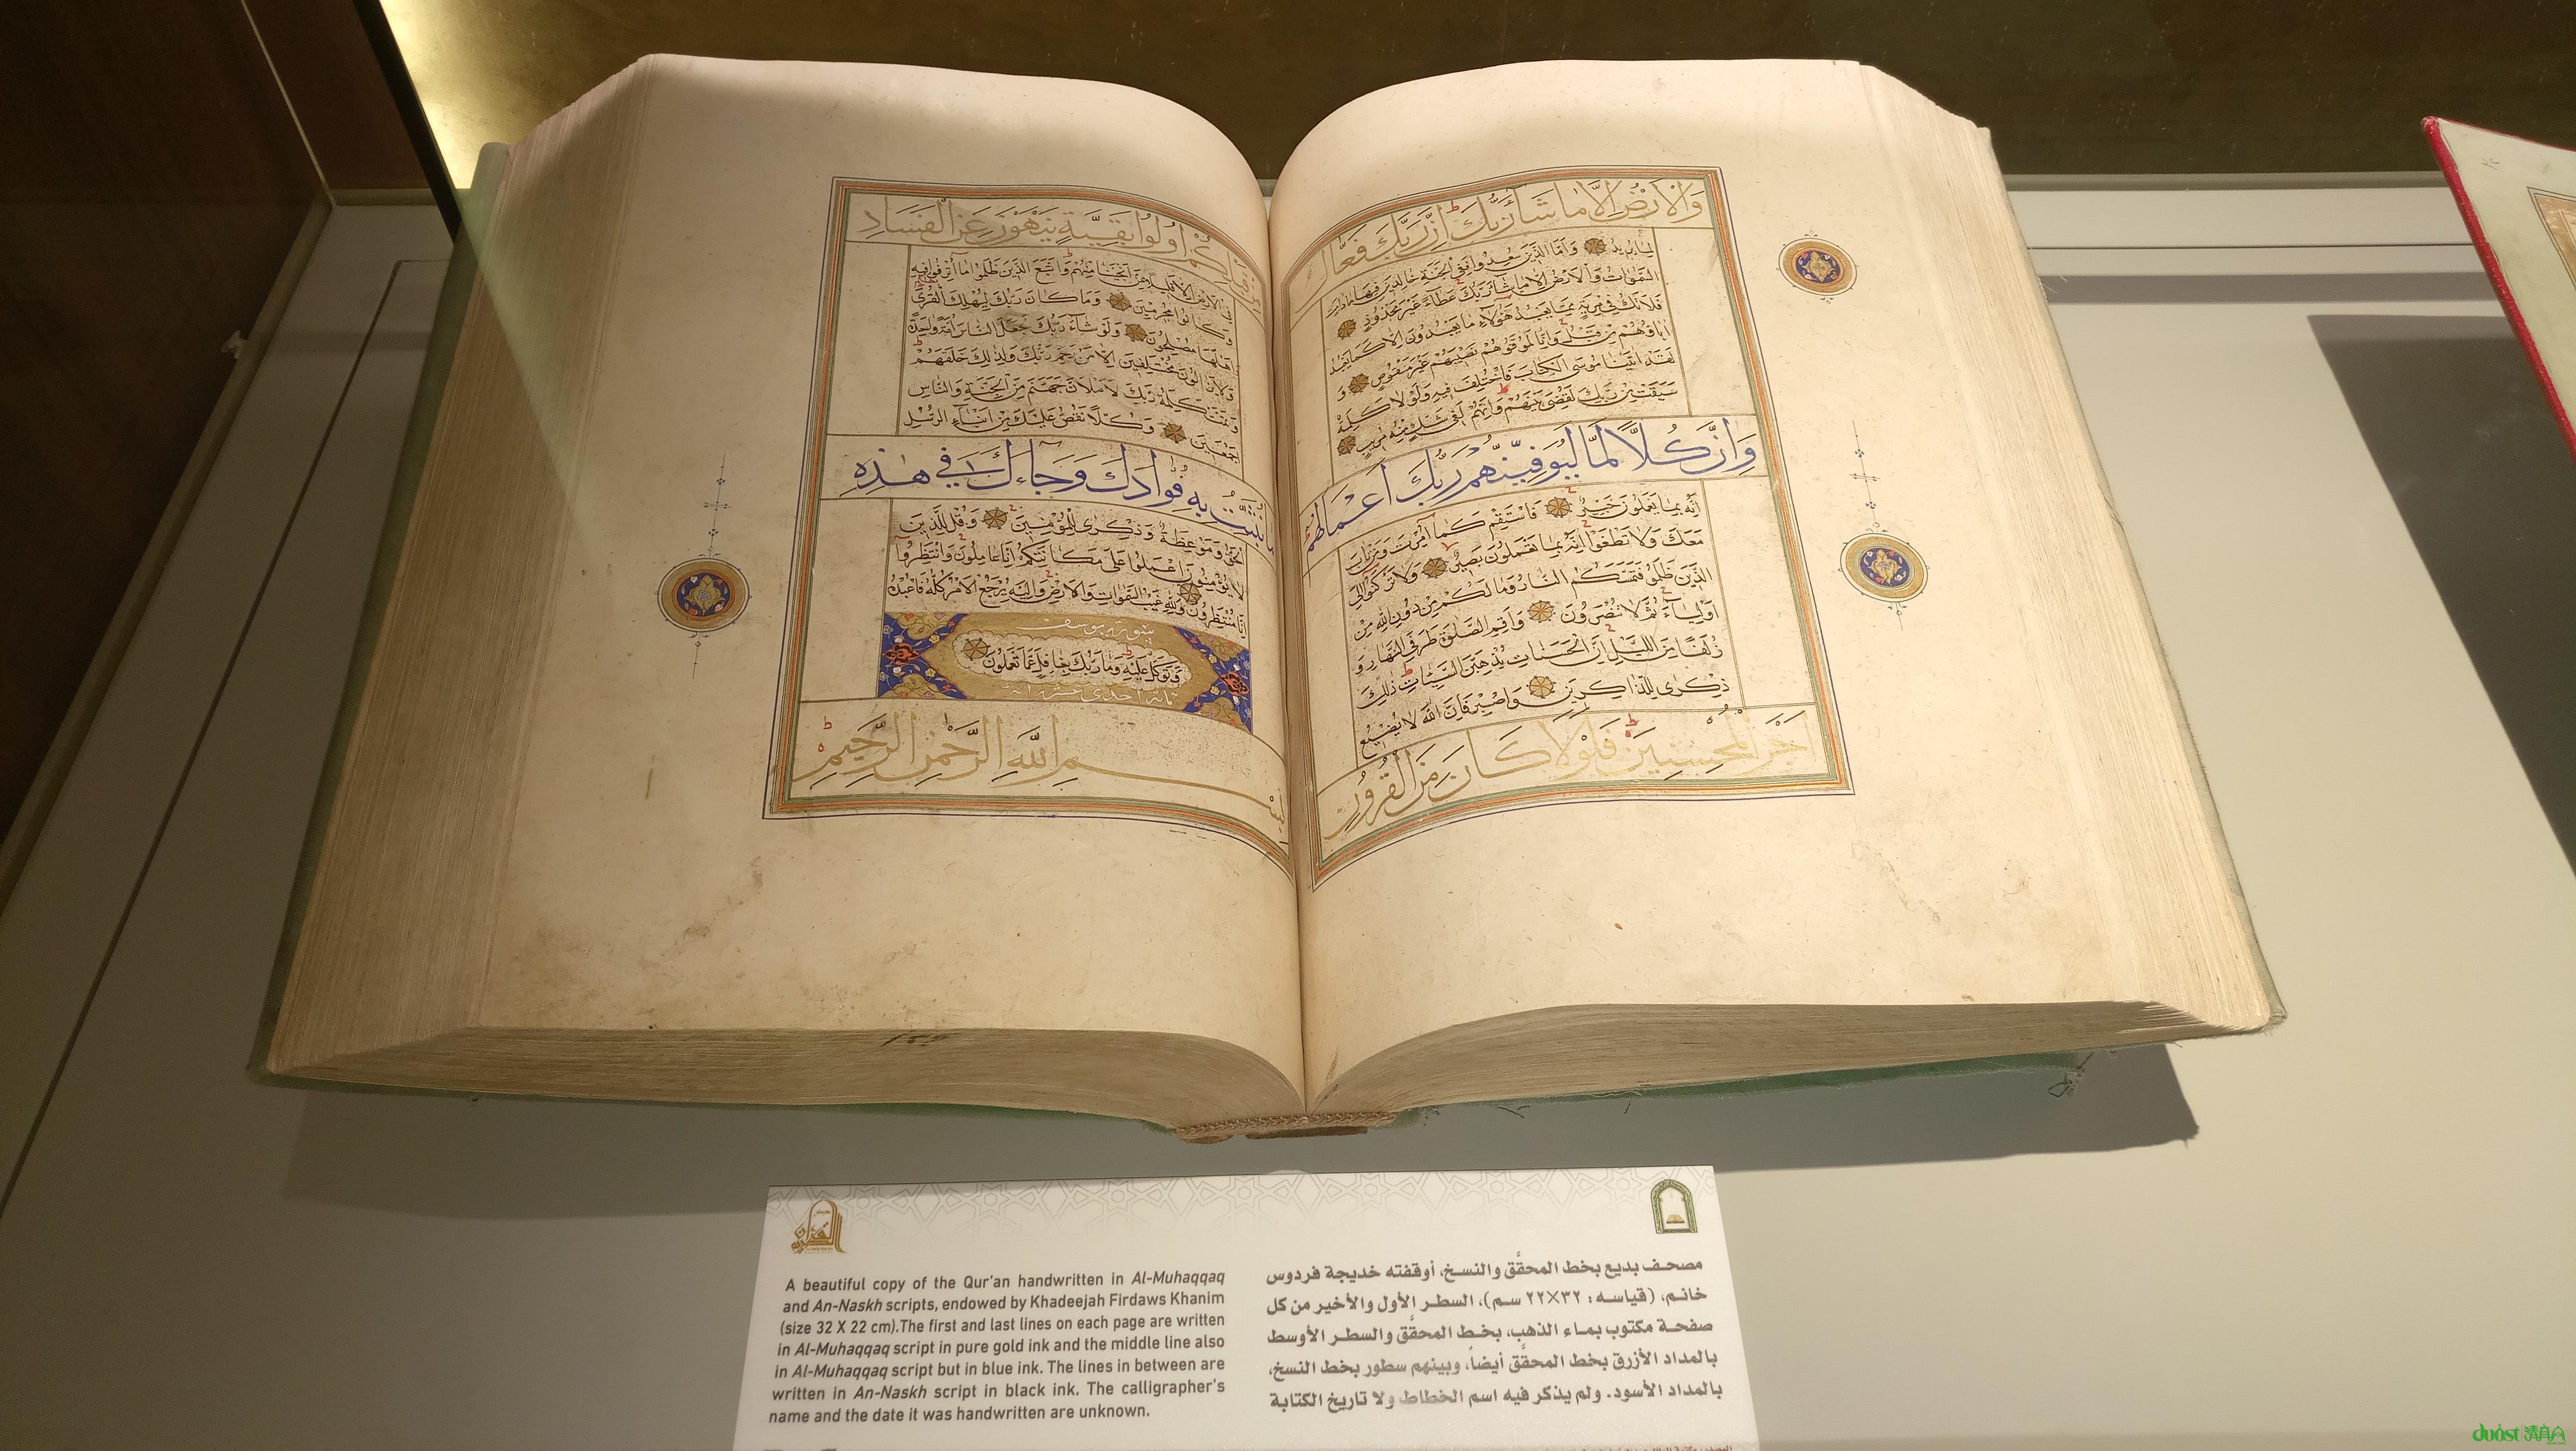 وَالْأَرْضُ إِلَّا مَا شَاءَ رَبُّكَ إِنَّ رَبَّكَ فَعَّالٌ
لِمَا يُرِيدُ وَأَمَّا الَّذِينَ سُعِدُوا فَفِي الْجَنَّةِ خَالِدِينَ فِيهَا مَا دَامَتِ
السَّمَوَاتُ وَالْأَرْضُ إِلَّا مَا شَاءَ رَبُّكَ عَطَاءً غَيْرَ مَجْذُوذٍ
فَلَا تَكُ فِي مِرْيَةٍ مِمَّا يَعْبُدُ هَؤُلَاءِ مَا يَعْبُدُونَ إِلَّا كَمَا يَعْبُدُ
آبَاؤُهُمْ مِنْ قَبْلُ وَإِنَّا لَمُوَفُّوهُمْ نَصِيبَهُمْ غَيْرَ مَنْقُوصٍ وَ
لَقَدْ آتَيْنَا مُوسَى الْكِتَابَ فَاخْتُلِفَ فِيهِ وَلَوْلَا كَلِمَةٌ
سَبَقَتْ مِنْ رَبِّكَ لَقُضِيَ بَيْنَهُمْ وَإِنَّهُمْ لَفِي شَكٍّ مِنْهُ مُرِيبٍ
وَإِنَّ كُلًّا لَمَّا لَيُوَفِّيَنَّهُمْ رَبُّكَ أَعْمَالَهُمْ
إِنَّهُ بِمَا يَعْمَلُونَ خَبِيرٌ فَاسْتَقِمْ كَمَا أُمِرْتَ وَمَنْ تَابَ
مَعَكَ وَلَا تَطْغَوْا إِنَّهُ بِمَا تَعْمَلُونَ بَصِيرٌ وَلَا تَرْكَنُوا إِلَى
الَّذِينَ ظَلَمُوا فَتَمَسَّكُمُ النَّارُ وَمَا لَكُمْ مِنْ دُونِ اللَّهِ مِنْ
أَوْلِيَاءَ ثُمَّ لَا تُنْصَرُونَ وَأَقِمِ الصَّلَوةَ طَرَفَيِ النَّهَارِ وَ
زُلَفًا مِنَ اللَّيْلِ إِنَّ الْحَسَنَاتِ يُذْهِبْنَ السَّيِّئَاتِ ذَلِكَ
ذِكْرَى لِلذَّاكِرِينَ وَاصْبِرْ فَإِنَّ اللَّهَ لَا يُضِيعُ
أَجْرَ الْمُحْسِنِينَ فَلَوْلَا كَانَ مِنَ الْقُرُونِ
أُولُوا بَقِيَّةٍ يَنْهَوْنَ عَنِ الْفَسَادِ
فِي الْأَرْضِ إِلَّا قَلِيلًا مِمَّنْ أَنْجَيْنَا مِنْهُمْ وَاتَّبَعَ الَّذِينَ ظَلَمُوا مَا أُتْرِفُوا فِيهِ
وَكَانُوا مُجْرِمِينَ وَمَا كَانَ رَبُّكَ لِيُهْلِكَ الْقُرَى
أَهْلُهَا مُصْلِحُونَ وَلَوْ شَاءَ رَبُّكَ لَجَعَلَ النَّاسَ أُمَّةً وَاحِدَةً
وَلَا يَزَالُونَ مُخْتَلِفِينَ إِلَّا مَنْ رَحِمَ رَبُّكَ وَلِذَلِكَ خَلَقَهُمْ
وَتَمَّتْ كَلِمَةُ رَبِّكَ لَأَمْلَأَنَّ جَهَنَّمَ مِنَ الْجِنَّةِ وَالنَّاسِ
أَجْمَعِينَ وَكُلًّا نَقُصُّ عَلَيْكَ مِنْ أَنْبَاءِ الرُّسُلِ
مَا نُثَبِّتُ بِهِ فُؤَادَكَ وَجَاءَكَ فِي هَذِهِ
الْحَقُّ وَمَوْعِظَةٌ وَذِكْرَى لِلْمُؤْمِنِينَ وَقُلْ لِلَّذِينَ
لَا يُؤْمِنُونَ اعْمَلُوا عَلَى مَكَانَتِكُمْ إِنَّا عَامِلُونَ وَانْتَظِرُوا
إِنَّا مُنْتَظِرُونَ وَلِلَّهِ غَيْبُ السَّمَوَاتِ وَالْأَرْضِ وَإِلَيْهِ يُرْجَعُ الْأَمْرُ كُلُّهُ فَاعْبُدْهُ
سورة يوسف
وَتَوَكَّلْ عَلَيْهِ وَمَا رَبُّكَ بِغَافِلٍ عَمَّا تَعْمَلُونَ
مائة احدى عشر آية
بِسْمِ اللَّهِ الرَّحْمَنِ الرَّحِيمِ
A beautiful copy of the Qur'an handwritten in Al-Muhaqqaq
and An-Naskh scripts, endowed by Khadeejah Firdaws Khanim
(size 32 X 22 cm).The first and last lines on each page are written
in Al-Muhaqqaq script in pure gold ink and the middle line also
in Al-Muhaqqaq script but in blue ink. The lines in between are
written in An-Naskh script in black ink. The calligrapher's
name and the date it was handwritten are unknown.
مصحف بديع بخط المحقَّق والنسخ، أوقفته خديجة فردوس
خانم، (قياسه: ٣٢×٢٢ سم)، السطر الأول والأخير من كل
صفحة مكتوب بماء الذهب، بخط المحقَّق والسطر الأوسط
بالمداد الأزرق بخط المحقَّق أيضاً، وبينهم سطور بخط النسخ،
بالمداد الأسود. ولم يذكر فيه اسم الخطاط ولا تاريخ الكتابة
duost